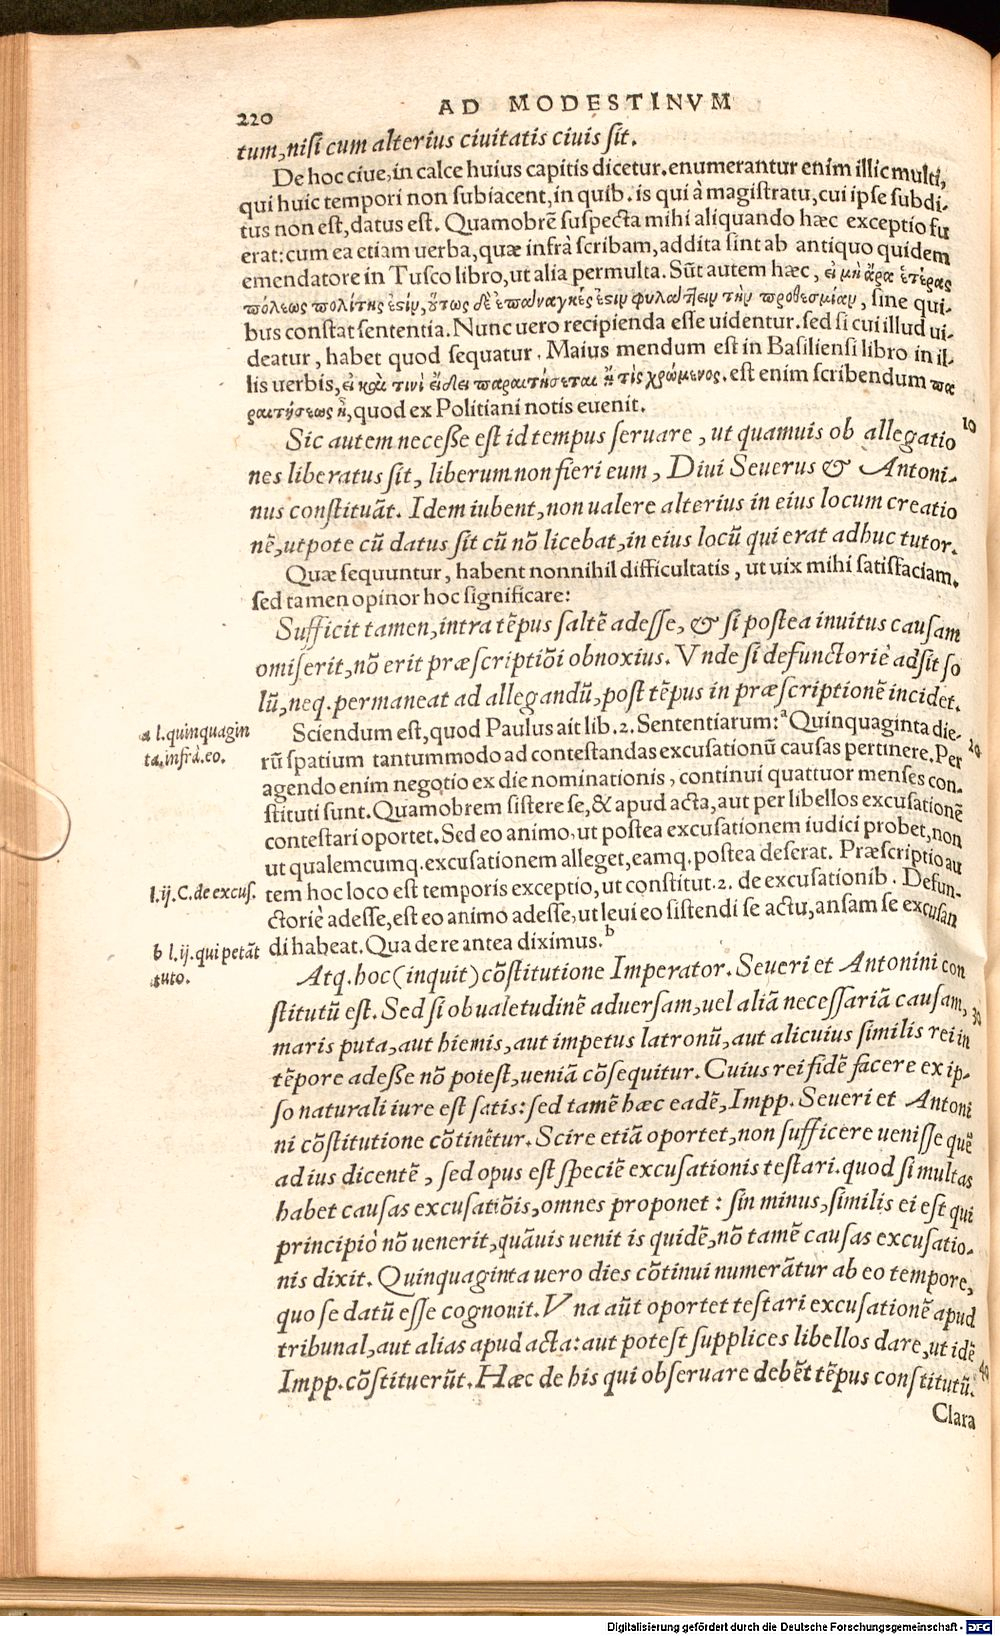 220
AD MODESTINVM
tum, nisi cum alterius ciuitatis ciuis sit.
De hoc ciue, in calce huius capitis dicetur. enumerantur enim illic multi,
qui huic tempori non subiacent, in quib. is qui à magistratu, cui ipse subdi-
tus non est, datus est. Quamobrẽ suspecta mihi aliquando hæc exceptio fu
erat: cum ea etiam uerba, quæ infrà scribam, addita sint ab antiquo quidem
emendatore in Tusco libro, ut alia permulta. Sũt autem hæc, εἰ μὴ ἄρα ἑτέρας
πόλεως πολίτης ἐςίν, οὕτως δὲ ἐπαναγκές ἐςιν φυλάττειν τὴν προθεσμίαν, sine qui-
bus constat sententia. Nunc uero recipienda esse uidentur. sed si cui illud ui-
deatur, habet quod sequatur. Maius mendum est in Basiliensi libro in il-
lis uerbis, εἰ καὶ τινὶ εἴδει παραιτήσεται ἤ τις χρώμενος. est enim scribendum πα
ραιτήσεως ᾖ, quod ex Politiani notis euenit.
Sic autem necesse est id tempus seruare, ut quamuis ob allegatio 10
nes liberatus sit, liberum non fieri eum, Diui Seuerus & Antoni-
nus constituãt. Idem iubent, non ualere alterius in eius locum creatio
nẽ, utpote cũ datus sit cũ nõ licebat, in eius locũ qui erat adhuc tutor.
Quæ sequuntur, habent nonnihil difficultatis, ut uix mihi satisfaciam.
sed tamen opinor hoc significare:
Sufficit tamen, intra tẽpus saltẽ adesse, & si postea inuitus causam
omiserit, nõ erit præscriptiõi obnoxius. Vnde si defunctoriè adsit so
lũ, neq. permaneat ad allegandũ, post tẽpus in præscriptionẽ incidet.
a l. quinquagin
ta. infrà. eo.
Sciendum est, quod Paulus ait lib. 2. Sententiarum: ª Quinquaginta die- 20
rũ spatium tantummodo ad contestandas excusationũ causas pertinere. Per
agendo enim negotio ex die nominationis, continui quattuor menses con-
stituti sunt. Quamobrem sistere se, & apud acta, aut per libellos excusationẽ
contestari oportet. Sed eo animo, ut postea excusationem iudici probet, non
ut qualemcumq. excusationem alleget, eamq. postea deserat. Præscriptio au
l. ij. C. de excus.
tem hoc loco est temporis exceptio, ut constitut. 2. de excusationib. Defun-
ctoriè adesse, est eo animo adesse, ut leui eo sistendi se actu, ansam se excusan
b l. ij. qui petãt
tuto.
di habeat. Qua de re antea diximus. b
Atq. hoc (inquit) cõstitutione Imperator. Seueri et Antonini con
stitutũ est. Sed si ob ualetudinẽ aduersam, uel aliã necessariã causam, 30
maris puta, aut hiemis, aut impetus latronũ, aut alicuius similis rei in
tẽpore adesse nõ potest, ueniã cõsequitur. Cuius rei fidẽ facere ex ip-
so naturali iure est satis: sed tamẽ hæc eadẽ, Impp. Seueri et Antoni
ni cõstitutione cõtinẽtur. Scire etiã oportet, non sufficere uenisse quẽ
ad ius dicentẽ, sed opus est speciẽ excusationis testari. quod si multas
habet causas excusatiõis, omnes proponet: sin minus, similis ei est qui
principiò nõ uenerit, quãuis uenit is quidẽ, nõ tamẽ causas excusatio-
nis dixit. Quinquaginta uero dies cõtinui numerãtur ab eo tempore,
quo se datũ esse cognouit. Vna aũt oportet testari excusationẽ apud
tribunal, aut alias apud acta: aut potest supplices libellos dare, ut idẽ
Impp. cõstituerũt. Hæc de his qui obseruare debẽt tẽpus constitutũ. 40
Clara
Digitalisierung gefördert durch die Deutsche Forschungsgemeinschaft - DFG